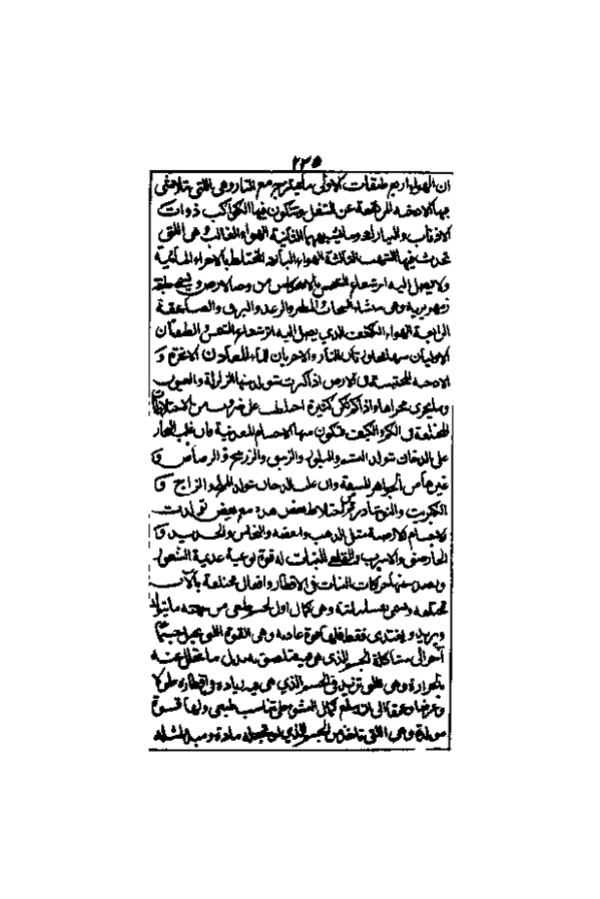 ٢٢٥
ان الهواء اربع طبقات الاولى ما يمتزج مع النار وهى التى يتلاشى
فيها الادخنة المرتفعة عن السفل ويتكون فيها الكواكب ذوات
الاذناب والنيازك وما يشبههما الثانية الهواء الغالب هى التى
تحدث فيها الشهب الثالثة الهواء البارد المختلط بالاجزاء المائية
ولا يصل اليه اثر شعاع الشمس بالانعكاس من وجه الارض ويسمى طبقة
زمهريرية وهى منشاء السحاب والمطر والرعد والبرق والصاعقة
الرابعة الهواء الكثيف الذى يصل اليه اثر شعاع الشمس الطبقتان
الاوليان منها النار والاخريان المعادن الابخرة و
الادخنة المحتبسة فى الارض اذا كثرت تتولد منها الزلزلة والعيون
وما يجرى مجراها واذا لم تكن كثيرة اختلطت على ضروب من الاختلاطات
المختلفة فى الكم والكيف فتكون منها الاجسام المعدنية فان غلب البخار
على الدخان تتولد اليشم والبلور والزيبق والزرنيخ والرصاص و
غيرها من الجواهر المشفة وان غلب الدخان تولد الملح والزاج و
الكبريت والنوشادر ثم اختلاط بعض هذه مع بعض تولدت
الاجسام الارضية مثل الذهب والفضة والنحاس والحديد و
الخارصينى والاسرب والقلعى النبات له قوة نوعية عديمة الشعور
ويصدر منها حركات النبات فى الاقطار وافعال مختلفة بآلات
مختلفة وتسمى نفسا نباتية وهى كمال اول لجسم طبيعى من جهة ما يتولد
ويزيد ويغتذى فقط فلها قوة غاذية وهى القوة التى تحيل جسما
آخر الى مشاكلة الجسم الذى هى فيه فتلصق به بدل ما يتحلل عنه
بالحرارة وهى التى تزيد فى الجسم الذى هى فيه زيادة فى اقطاره طولا
وعرضا وعمقا الى ان يبلغ كمال النشو على تناسب طبيعى ولها قوة
مولدة وهى التى تاخذ من الجسم الذى هى فيه مادة ومبدأ لمثله